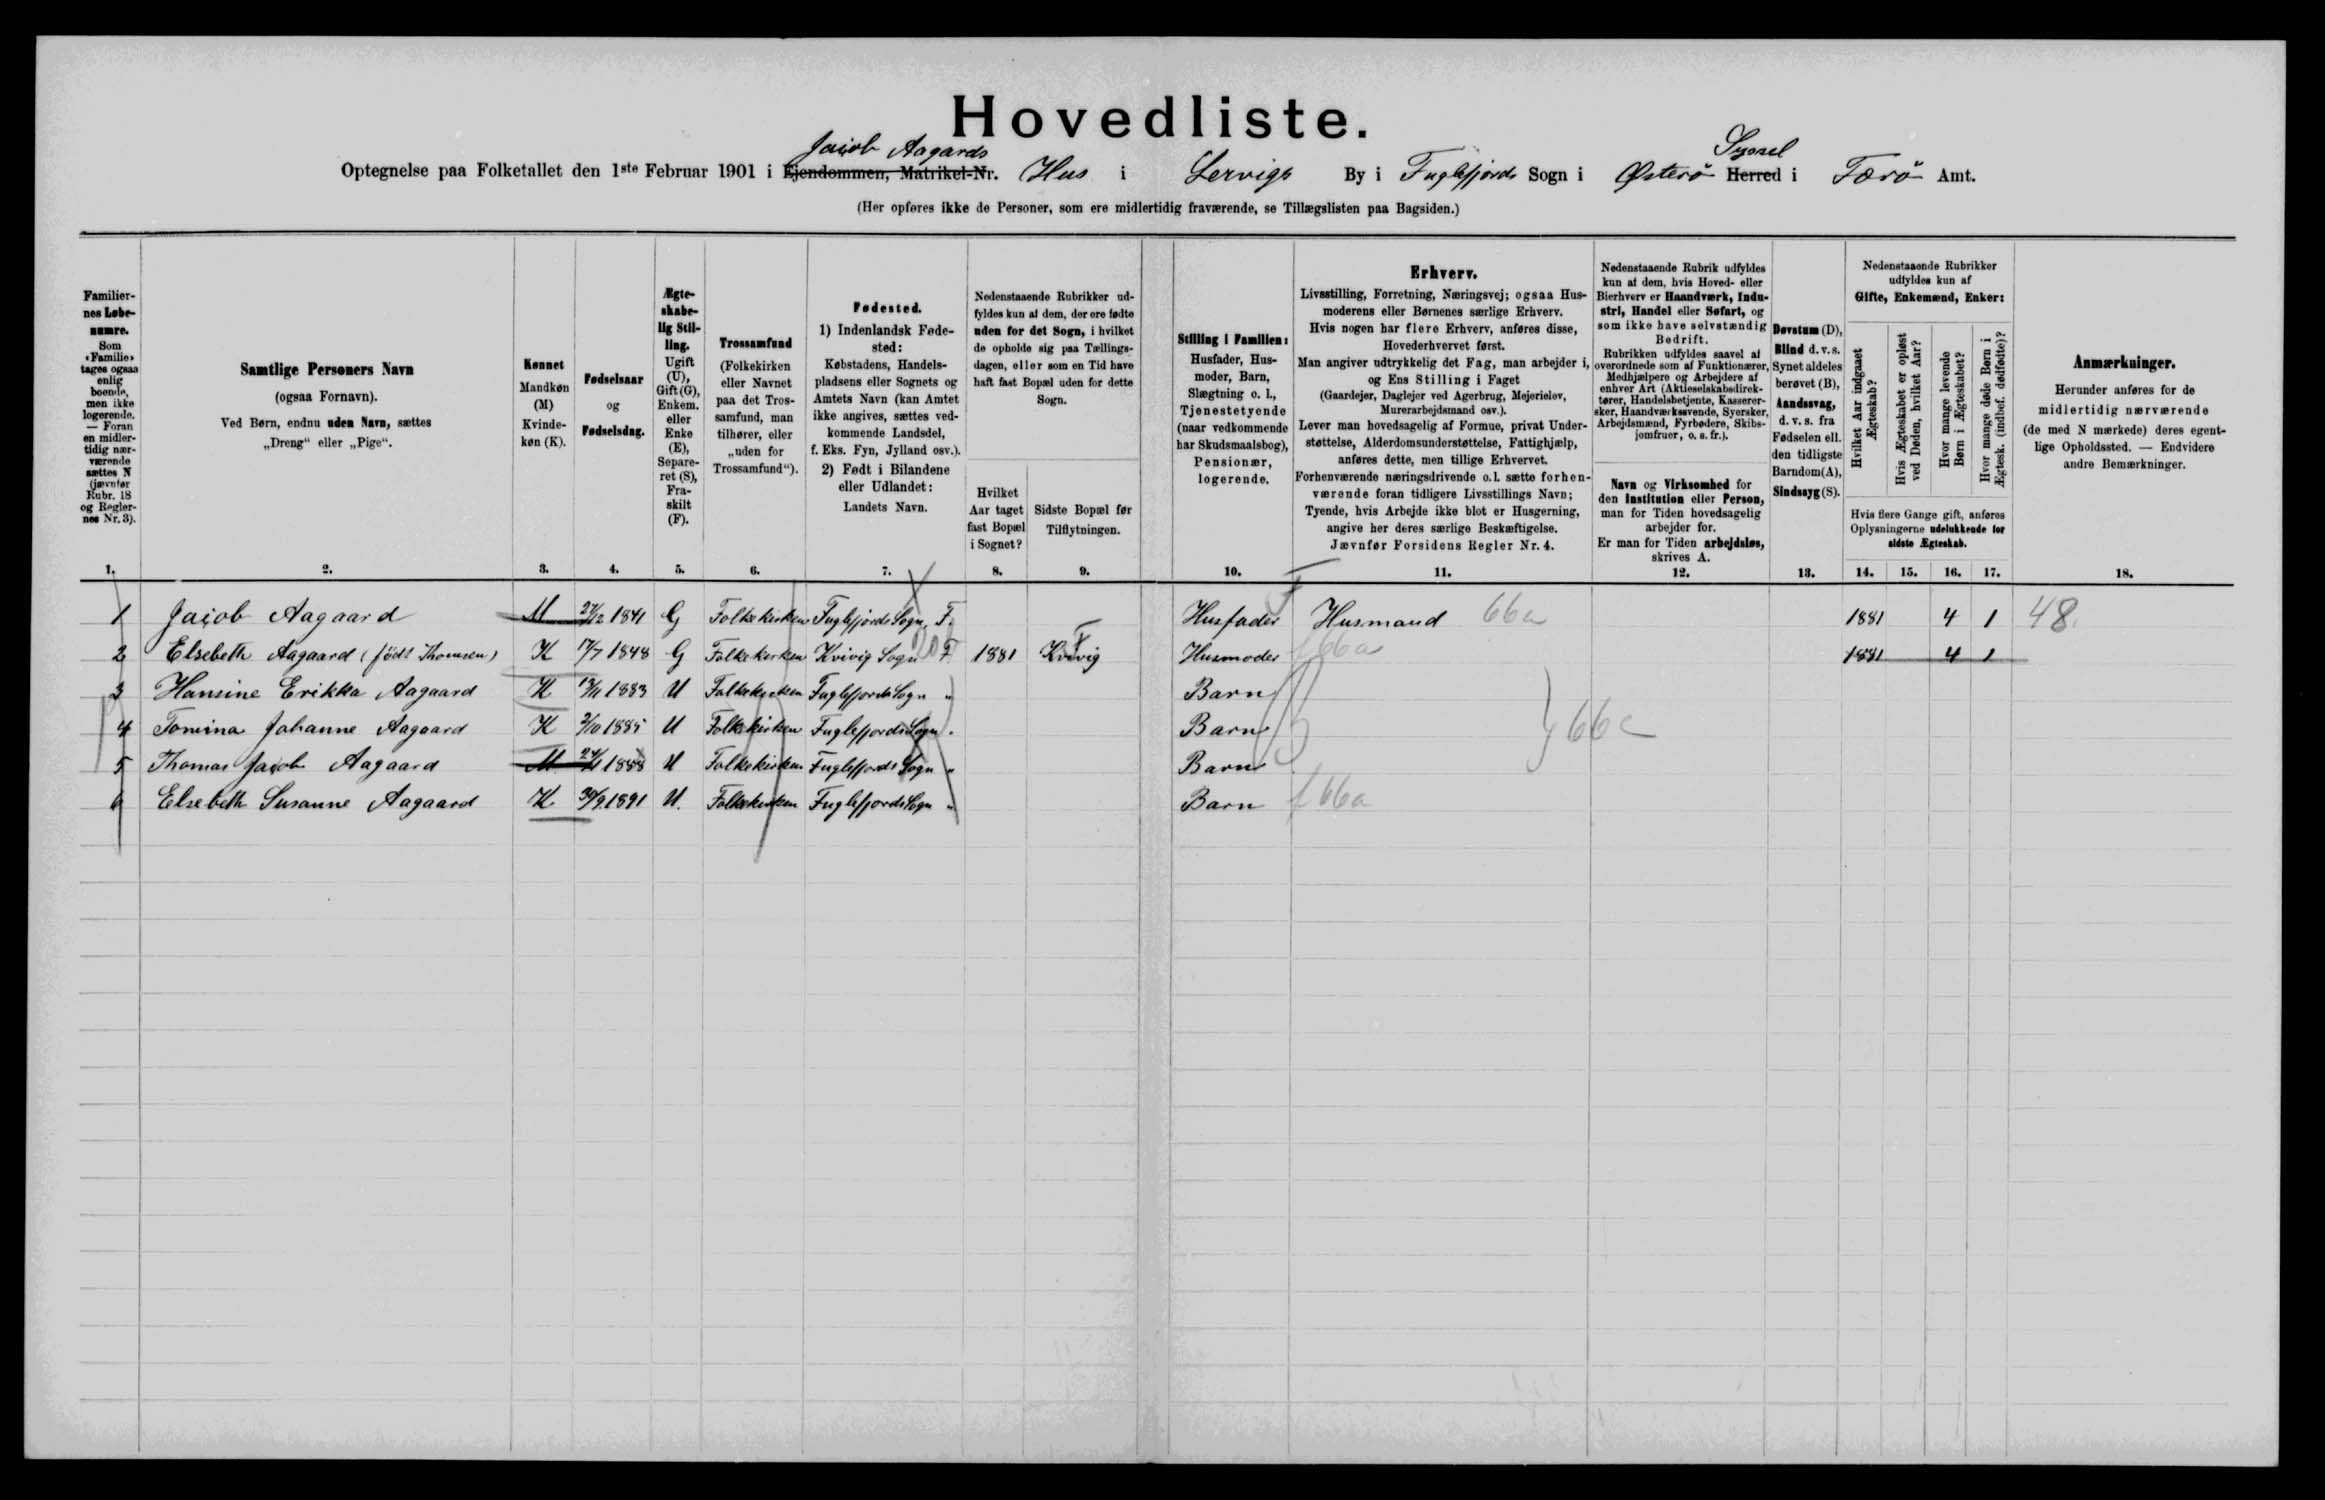 Hovedliste.
Jacob Aagards
Syssel
Optegnelse paa Folketallet den 1ste Februar 1901 i Ejendommen, Matrikel-Nr. Hus i Lervigs By i Fuglefjords Sogn i Østerö Herred i Færö Amt.
(Her opføres ikke de Personer, som ere midlertidig fraværende, se Tillægslisten paa Bagsiden.)
Familiernes Løbenumre.
Som «Familie» tages ogsaa enlig boende, men ikke logerende. — Foran en midlertidig nærværende sættes N (jævnfør Rubr. 18 og Reglernes Nr. 3).
1.
Samtlige Personers Navn
(ogsaa Fornavn).
Ved Børn, endnu uden Navn, sættes
„Dreng“ eller „Pige“.
2.
Kønnet
Mandkøn
(M)
Kvinde-
køn (K).
3.
Fødselsaar
og
Fødselsdag.
4.
Ægte-
skabe-
lig Stil-
ling.
Ugift
(U),
Gift (G),
Enkem.
eller
Enke
(E),
Separe-
ret (S),
Fra-
skilt
(F).
5.
Trossamfund
(Folkekirken
eller Navnet
paa det Tros-
samfund, man
tilhører, eller
„uden for
Trossamfund“).
6.
Fødested.
1) Indenlandsk Føde-
sted:
Købstadens, Handels-
pladsens eller Sognets og
Amtets Navn (kan Amtet
ikke angives, sættes ved-
kommende Landsdel,
f. Eks. Fyn, Jylland osv.).
2) Født i Bilandene
eller Udlandet:
Landets Navn.
7.
Nedenstaaende Rubrikker ud-
fyldes kun af dem, der ere fødte
uden for det Sogn, i hvilket
de opholde sig paa Tællings-
dagen, eller som en Tid have
haft fast Bopæl uden for dette
Sogn.
Hvilket
Aar taget
fast Bopæl
i Sognet?
8.
Sidste Bopæl før
Tilflytningen.
9.
Stilling i Familien:
Husfader, Hus-
moder, Barn,
Slægtning o. l.,
Tjenestetyende
(naar vedkommende
har Skudsmaalsbog),
Pensionær,
logerende.
10.
Erhverv.
Livsstilling, Forretning, Næringsvej; ogsaa Hus-
moderens eller Børnenes særlige Erhverv.
Hvis nogen har flere Erhverv, anføres disse,
Hovederhvervet først.
Man angiver udtrykkelig det Fag, man arbejder i,
og Ens Stilling i Faget
(Gaardejer, Daglejer ved Agerbrug, Mejerielev,
Murerarbejdsmand osv.).
Lever man hovedsagelig af Formue, privat Under-
støttelse, Alderdomsunderstøttelse, Fattighjælp,
anføres dette, men tillige Erhvervet.
Forhenværende næringsdrivende o.l. sætte forhen-
værende foran tidligere Livsstillings Navn;
Tyende, hvis Arbejde ikke blot er Husgerning,
angive her deres særlige Beskæftigelse.
Jævnfør Forsidens Regler Nr. 4.
11.
Nedenstaaende Rubrik udfyldes
kun af dem, hvis Hoved- eller
Bierhverv er Haandværk, Indu-
stri, Handel eller Søfart, og
som ikke have selvstændig
Bedrift.
Rubrikken udfyldes saavel af
overordnede som af Funktionærer,
Medhjælpere og Arbejdere af
enhver Art (Aktieselskabsdirek-
tører, Handelsbetjente, Kasserer-
sker, Haandværkssvende, Syersker,
Arbejdsmænd, Fyrbødere, Skibs-
jomfruer, o. s. fr.).
Navn og Virksomhed for
den Institution eller Person,
man for Tiden hovedsagelig
arbejder for.
Er man for Tiden arbejdsløs,
skrives A.
12.
Døvstum (D),
Blind d. v. s.
Synet aldeles
berøvet (B),
Aandssvag,
d. v. s. fra
Fødselen ell.
den tidligste
Barndom(A),
Sindssyg (S).
13.
Nedenstaaende Rubrikker
udfyldes kun af
Gifte, Enkemænd, Enker:
Hvilket Aar indgaaet
Ægteskab?
Hvis Ægteskabet er opløst
ved Døden, hvilket Aar?
Hvor mange levende
Børn i Ægteskabet?
Hvor mange døde Børn i
Ægtesk. (indbef. dødfødte)?
Hvis flere Gange gift, anføres
Oplysningerne udelukkende for
sidste Ægteskab.
14. 15. 16. 17.
Anmærkninger.
Herunder anføres for de
midlertidig nærværende
(de med N mærkede) deres egent-
lige Opholdssted. — Endvidere
andre Bemærkninger.
18.
1 Jacob Aagaard M 27/12 1841 G Folkekirken Fuglefjords Sogn, F. Husfader Husmand 66a 1881 4 1 48.
2 Elsebeth Aagaard (födt Thomsen) K 17/7 1848 G Folkekirken Kvivig Sogn F 1881 Kvivig Husmoder f 66a 1881 4 1
3 Hansine Erikka Aagaard K 13/11 1883 U Folkekirken Fuglefjords Sogn „ Barn
4 Tomina Johanne Aagaard K 2/10 1885 U Folkekirken Fuglefjords Sogn „ Barn 66c
5 Thomas Jacob Aagaard M 1888 U Folkekirken Fuglefjords Sogn „ Barn
6 Elsebeth Susanne Aagaard K 30/9 1891 U. Folkekirken Fuglefjords Sogn „ Barn f 66a